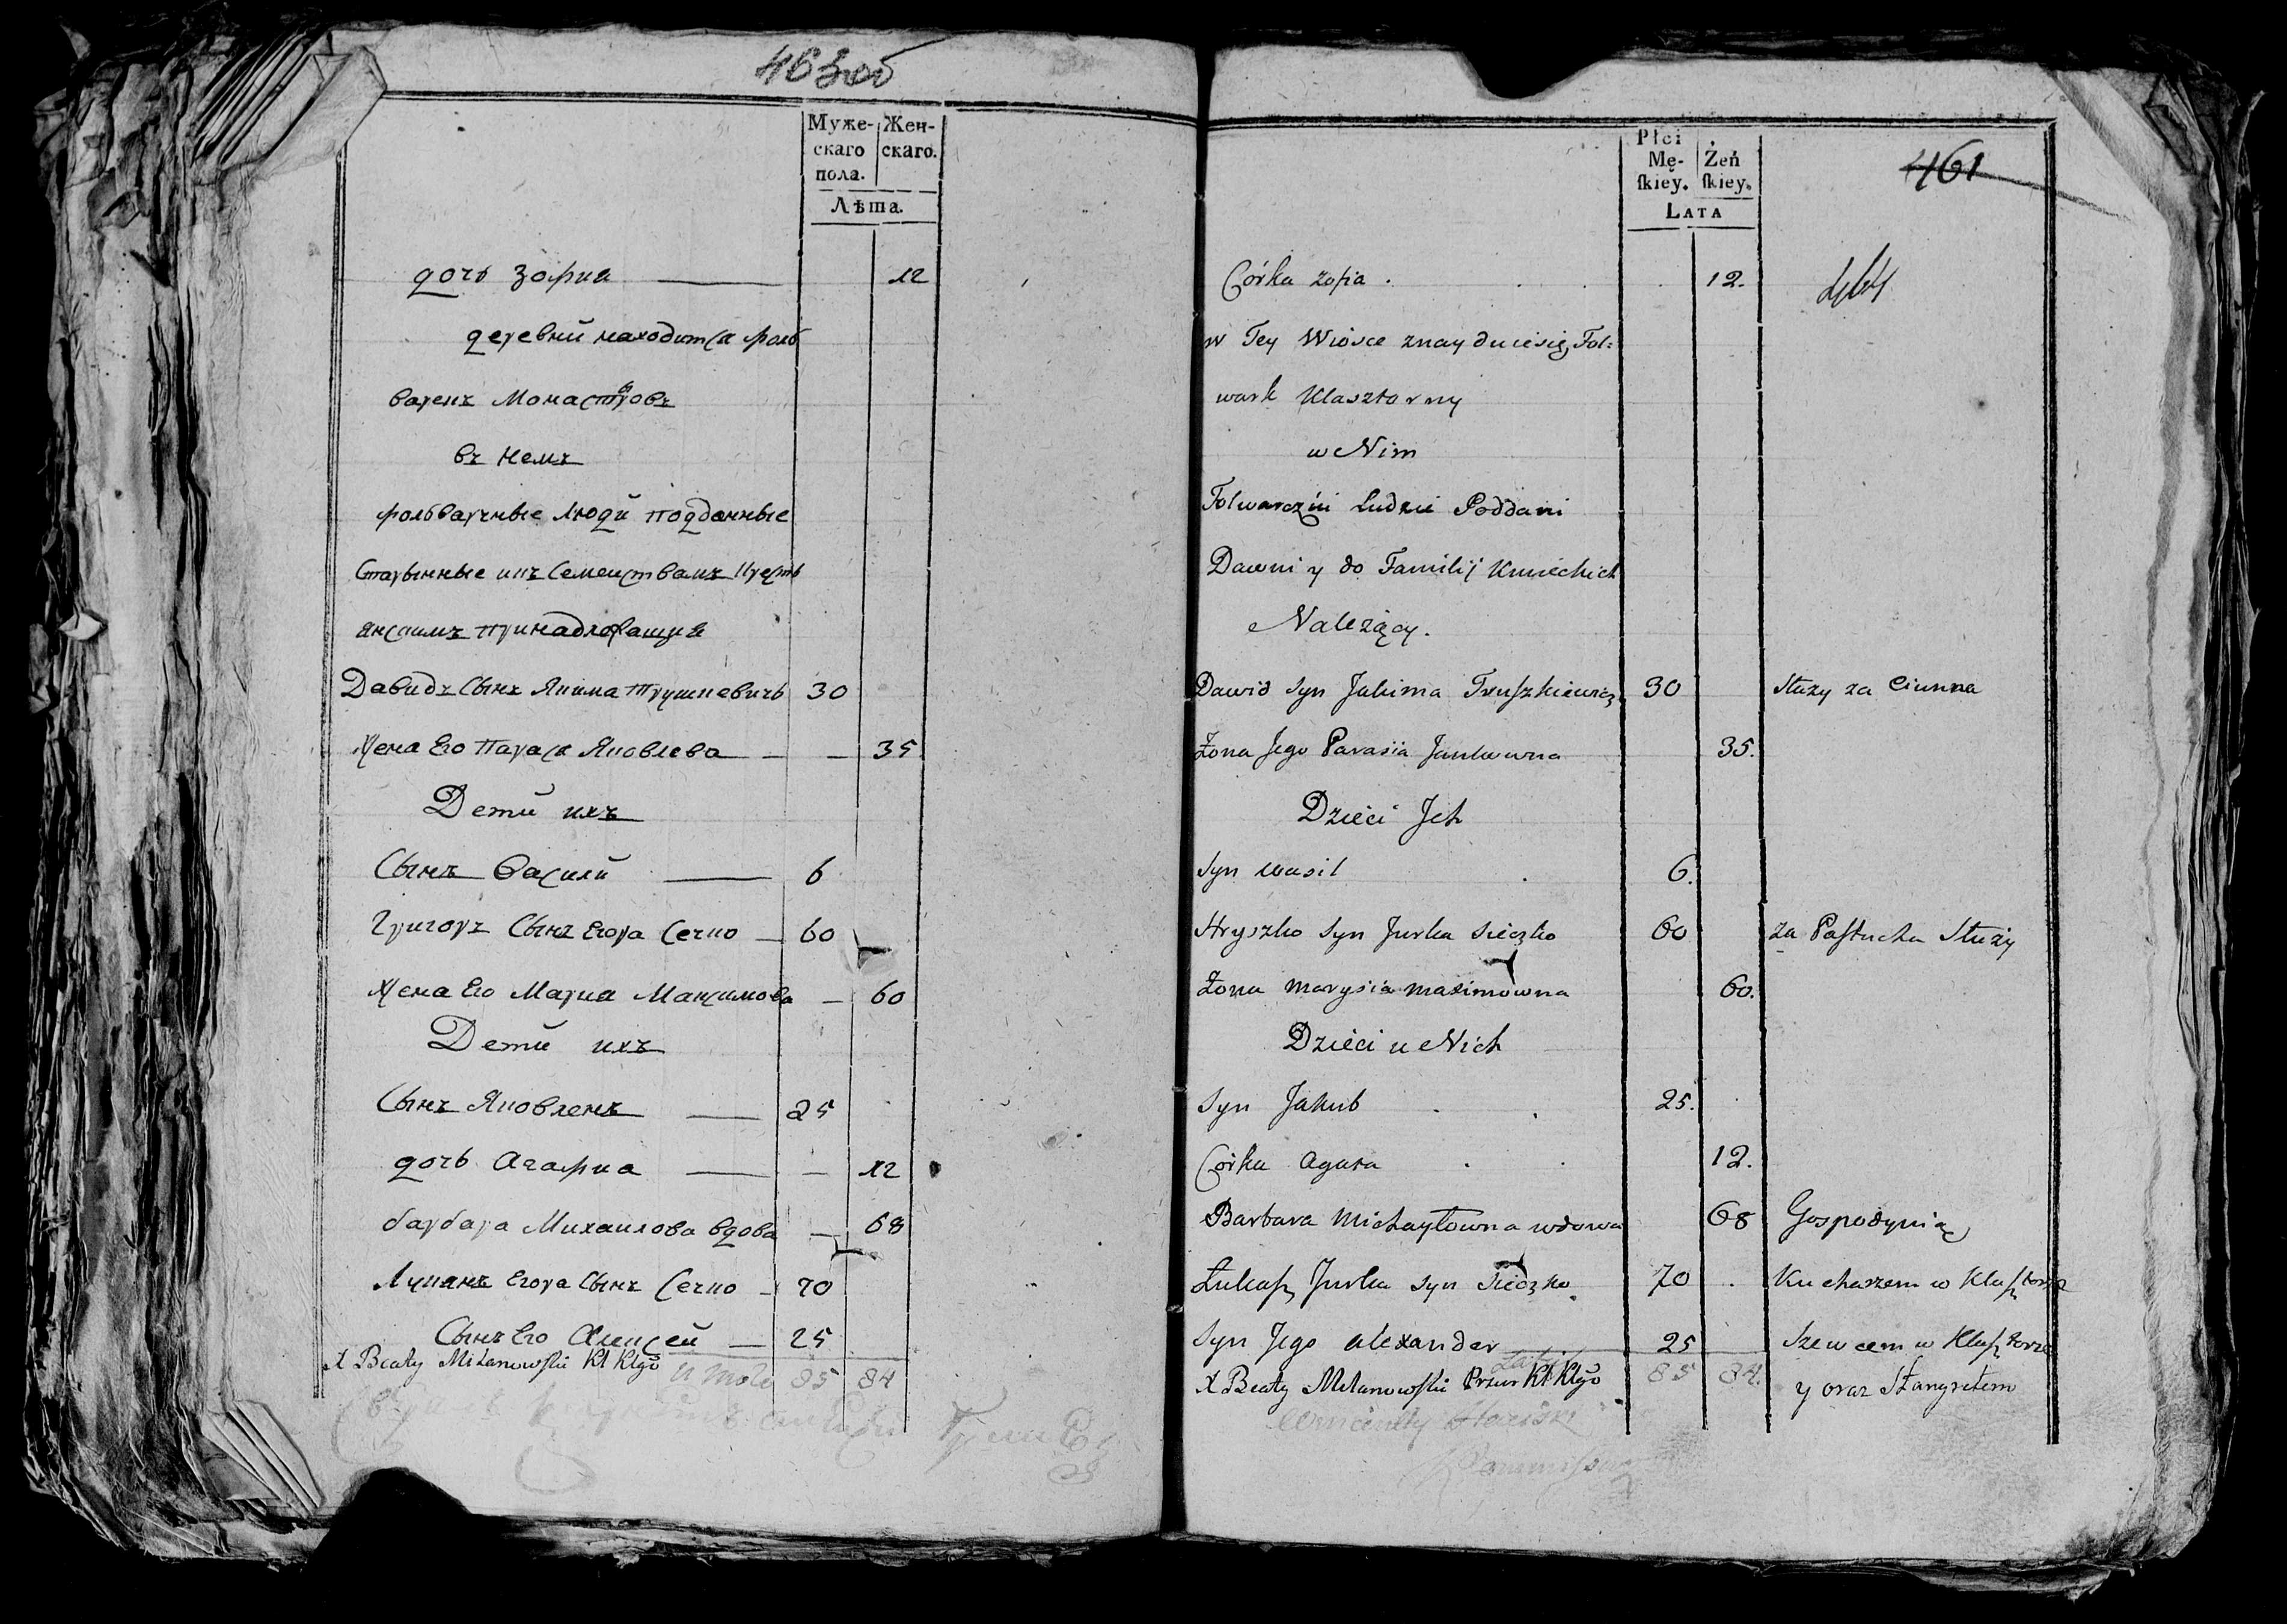 463об
Муже-
скаго
пола.
Жен-
скаго.
Лѣта.
дочь Зофиа 12
деревни находитса фоль
варекъ Монастровъ
въ немъ
фольварчные люди подданные
Старынные икъ Семействамъ Кресть
янскимъ принадлежащие
Давидъ Сынъ Якима Трушкевичь 30
Жена Его Параса Яковлева 35
Дети ихъ
Сынъ Василий 6
Григоръ Сынъ Егора Сечко 60
Жена Его Мариа Максимова 60
Дети ихъ
Сынъ Яковлекъ 25
дочь Агафиа 12
барбара Михаилова вдова 68
Лукашъ Егора Сынъ Сечко 70
Сынъ Его Алексей 25
X Beaty Milanowski Kl Klgo
85 84
Płci
Mę-
skiey.
Żeń
skiey.
Lata
461
464
Córka Zofia . 12.
w Tey Wiosce znayduiesię Fol=
wark Klasztorny
w Nim
Folwarczni Ludzie Poddani
Dawni y do Familij Kmieckich
Nalezący.
Dawid Syn Jakima Truszkiewicz 30 Słuzy za Ciunna
Żona Jego Parasia Jankowna 35.
Dzieci Jch
Syn Wasil 6.
Hryszko Syn Jurka Sieczko 60 za Pastucha Słuzy
Żona Marysia Maximowna 60.
Dzieci u Nich
Syn Jakub 25.
Córka Agata 12.
Barbara Michayłowna wdowa 68 Gospodynią
Łukasz Jurka Syn Sieczko 70 Kucharzem w Klasztorze
Syn Jego Alexander 25 Szewcem w Klasztorze
X Beaty Milanowski Przeor Kl Klgo 85 84. y oraz Stangretem